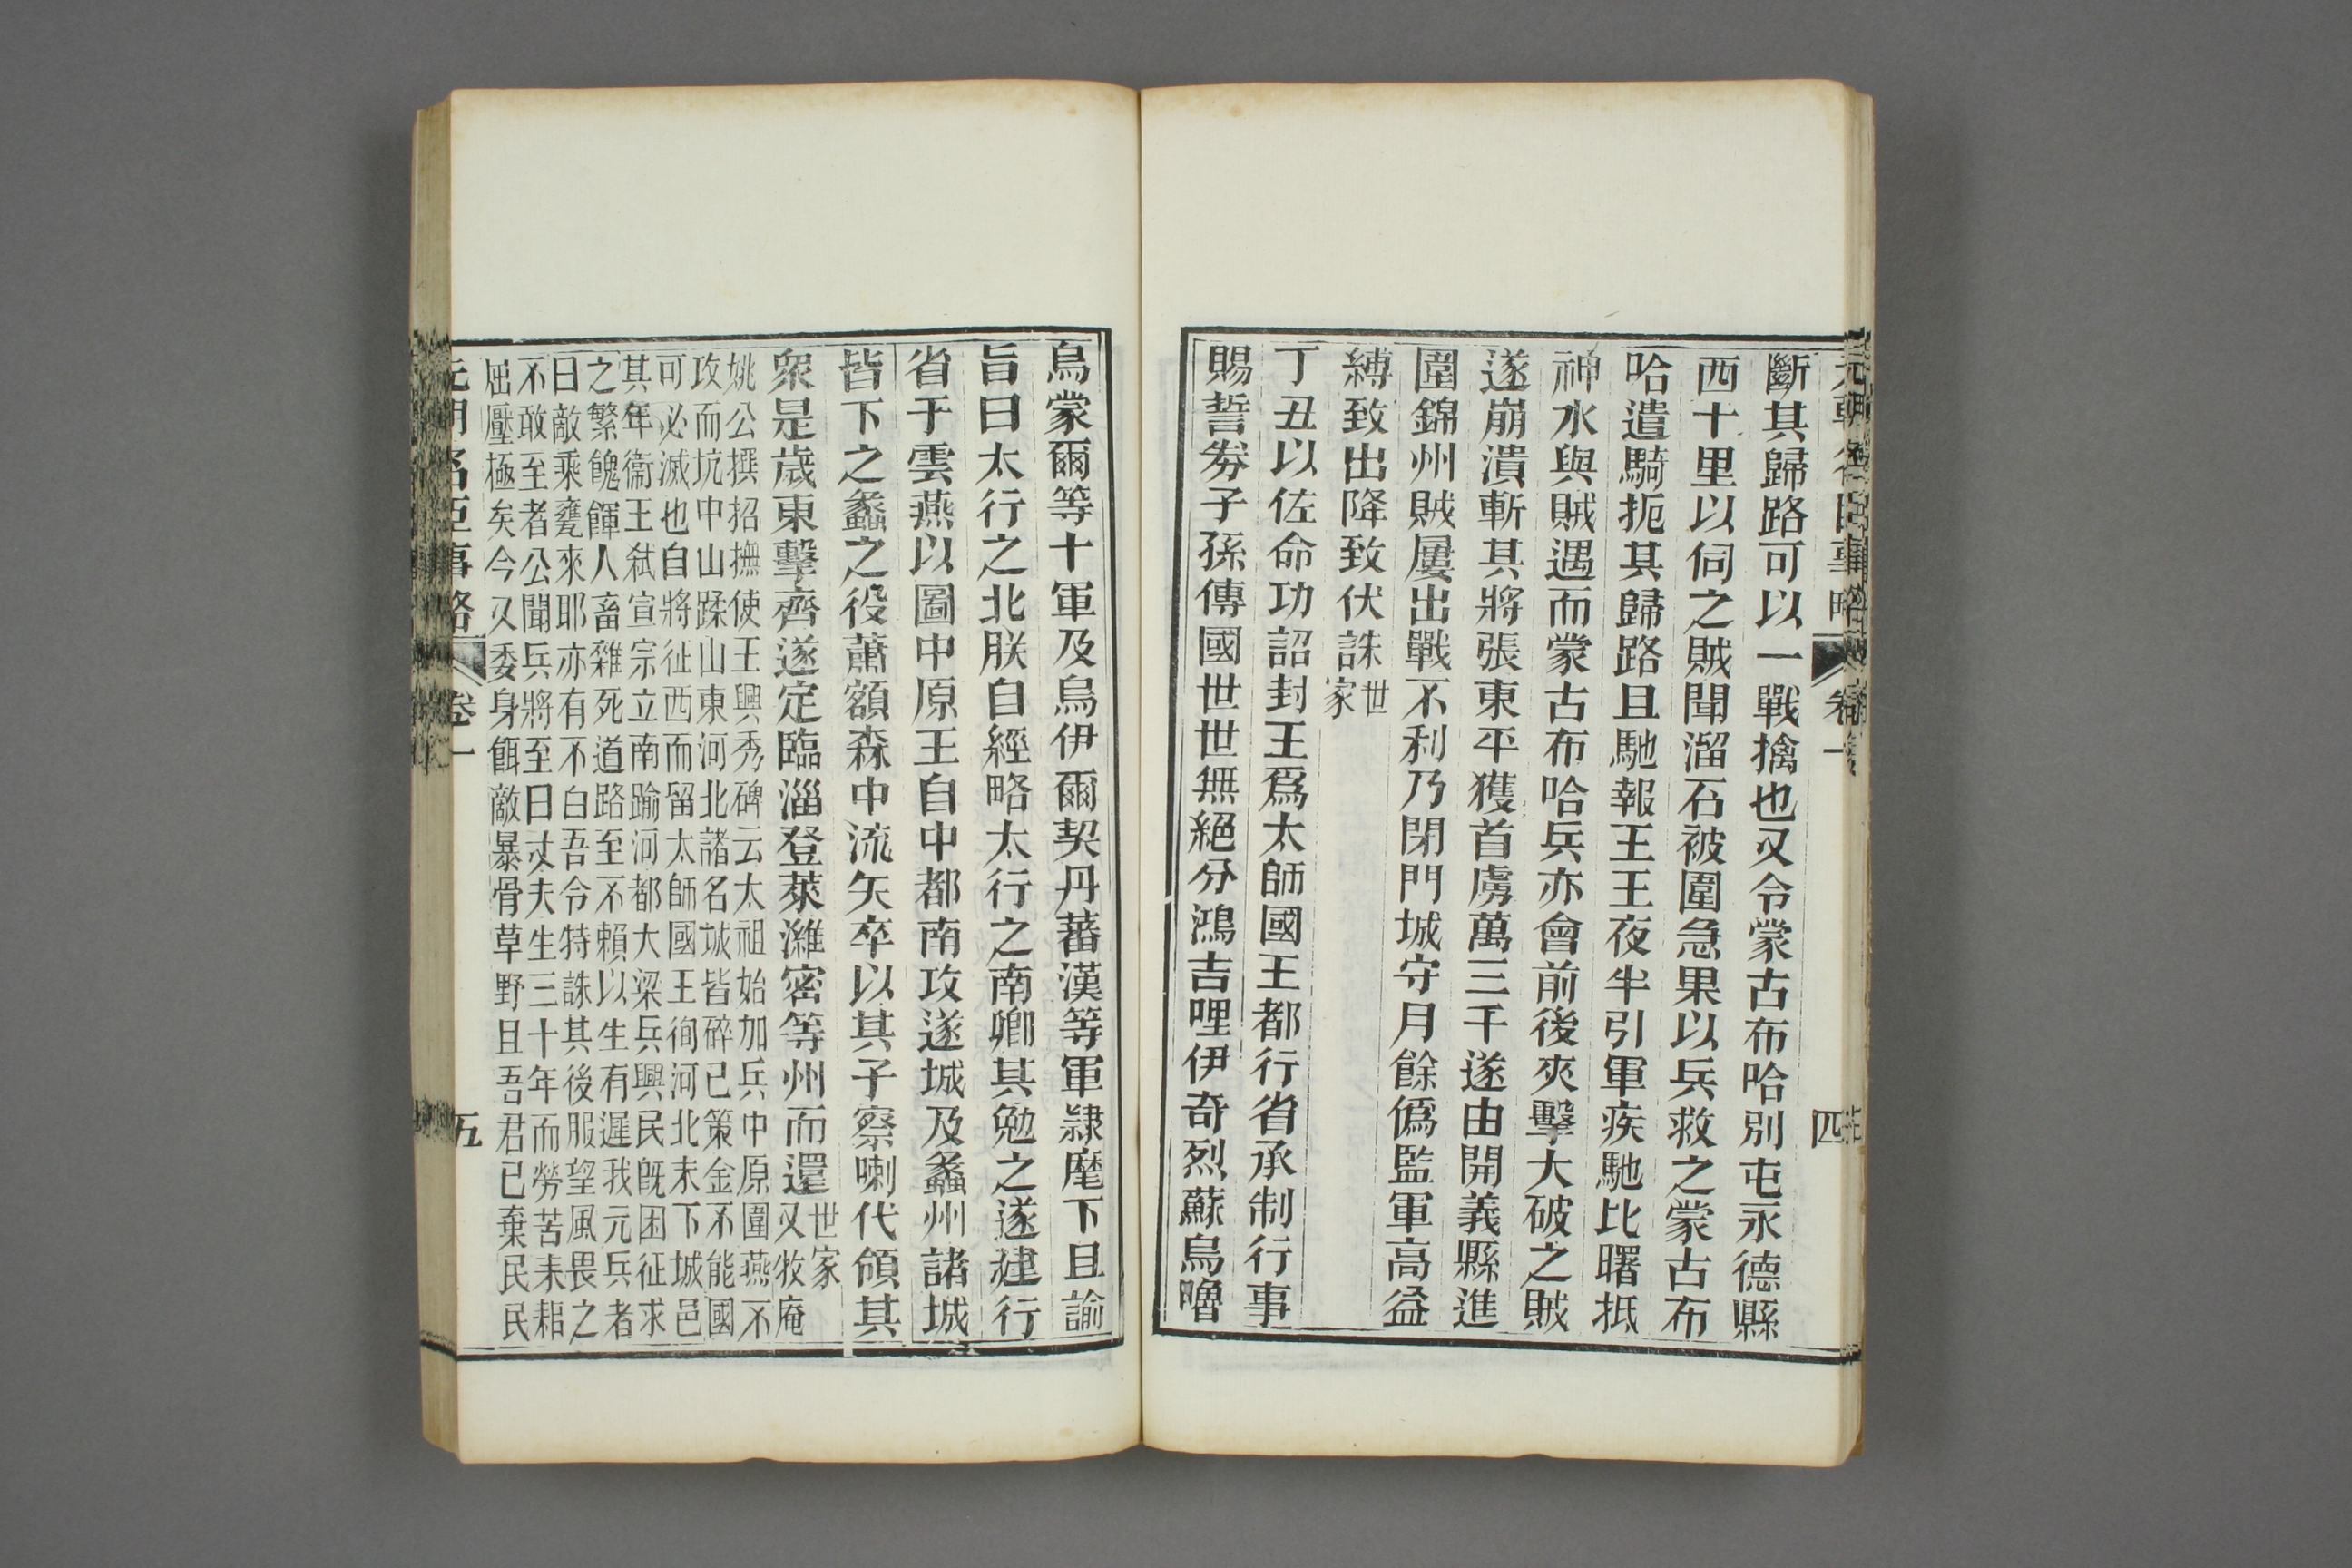 元朝名臣事略 卷一 四
斷其歸路可以一戰擒也又令蒙古布哈別屯永德縣
西十里以伺之賊聞溜石被圍急果以兵救之蒙古布
哈遣騎扼其歸路且馳報王王夜半引軍疾馳比曙抵
神水與賊遇而蒙古布哈兵亦會前後夾擊大破之賊
遂崩潰斬其將張東平獲首虜萬三千遂由開義縣進
圍錦州賊屢出戰不利乃閉門城守月餘僞監軍高益
縛致出降致伏誅世家
丁丑以佐命功詔封王爲太師國王都行省承制行事
賜誓劵子孫傳國世世無絕分鴻吉哩伊奇烈蘇烏嚕
烏蒙爾等十軍及烏伊爾契丹蕃漢等軍隷麾下且諭
旨曰太行之北朕自經略太行之南卿其勉之遂建行
省于雲燕以圖中原王自中都南攻遂城及蠡州諸城
皆下之蠡之役蕭額森中流矢卒以其子察喇代領其
衆是歲東擊齊遂定臨淄登萊濰密等州而還世家
又牧庵
姚公撰招撫使王興秀碑云太祖始加兵中原圍燕不
攻而坑中山蹂山東河北諸名城皆碎已策金不能國
可必滅也自將征西而留太師國王徇河北未下城邑
其年衞王弒宣宗立南踰河都大梁兵興民旣困征求
之繁餽餫人畜雜死道路至不賴以生有遲我元兵者
曰敵乘甕來耶亦有不白吾令特誅其後服望風畏之
不敢至者公聞兵將至曰丈夫生三十年而勞苦耒耜
屈壓極矣今又委身餌敵暴骨草野且吾君已棄民民
元朝名臣事略 卷一 五